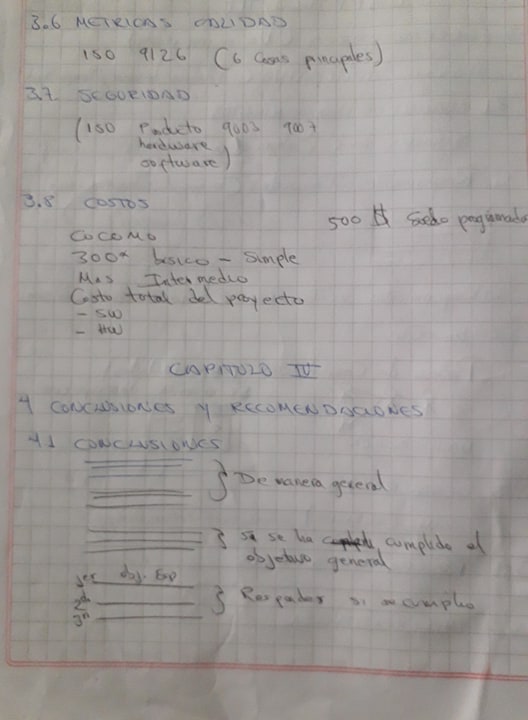 3.6 METRICAS CALIDAD
ISO 9126 (6 Cosas principales)
3.7 SEGURIDAD
(ISO Producto 9003 9007
hardware
software)
3.8 COSTOS
500 $ Sueldo programador
COCOMO
300* basico - Simple
Mas Intermedio
Costo total del proyecto
- SW
- HW
CAPITULO IV
4 CONCLUSIONES Y RECOMENDACIONES
4.1 CONCLUSIONES
} De manera general
} si se ha cumplido el
objetivo general
1er obj. Esp
2do
3er
} Responder si se cumplio